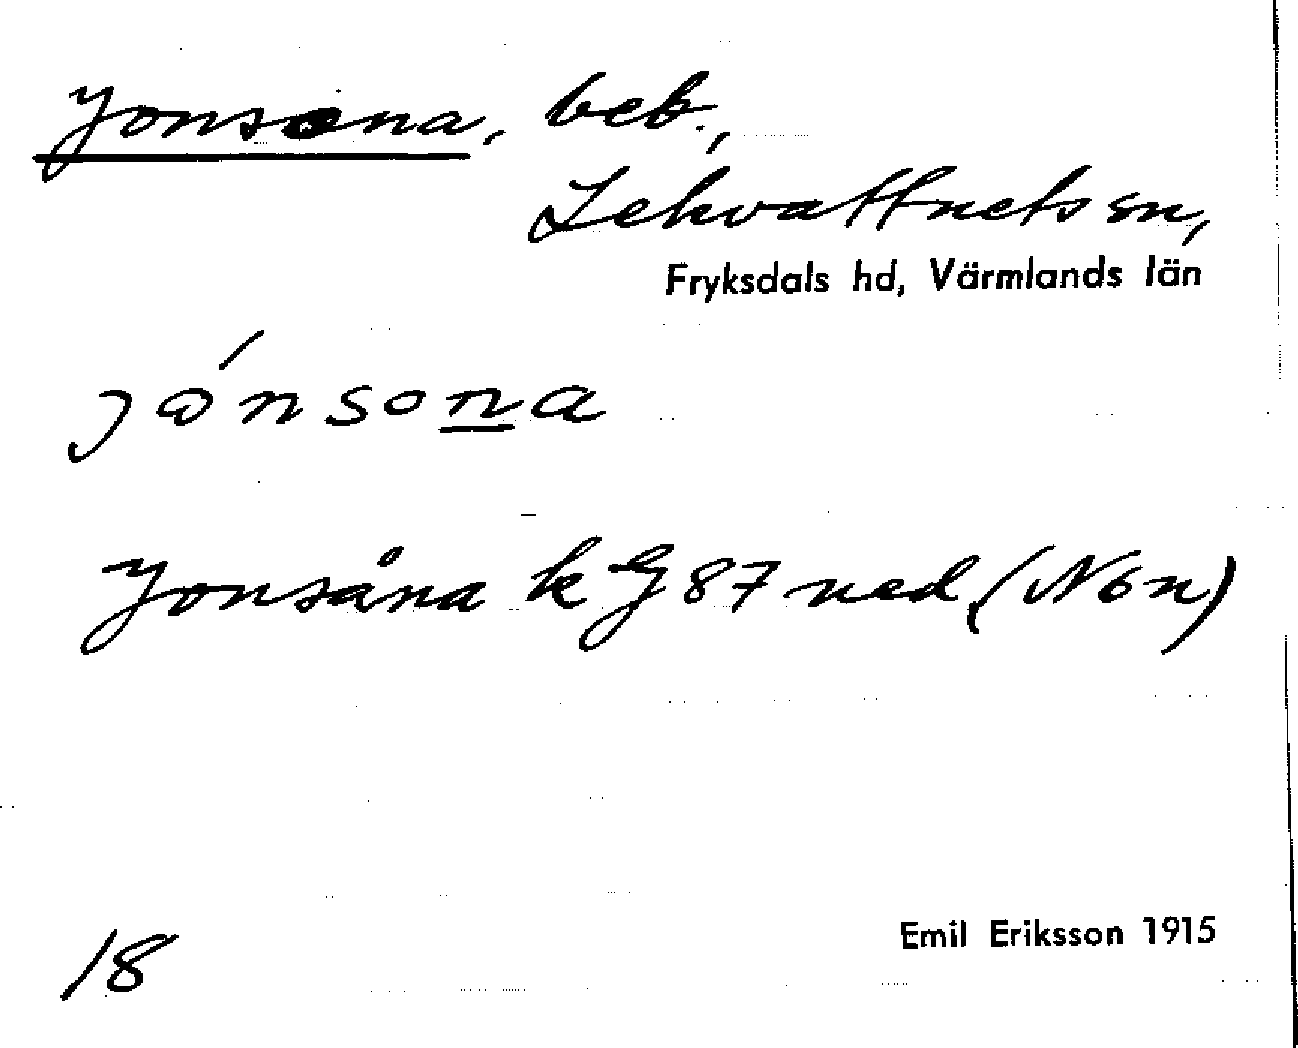 Jonsona, beb.,
Lekvattnets sn,
Fryksdals hd, Värmlands län
jónsona
Jonsåna k G 87 ned (Nön)
18
Emil Eriksson 1915